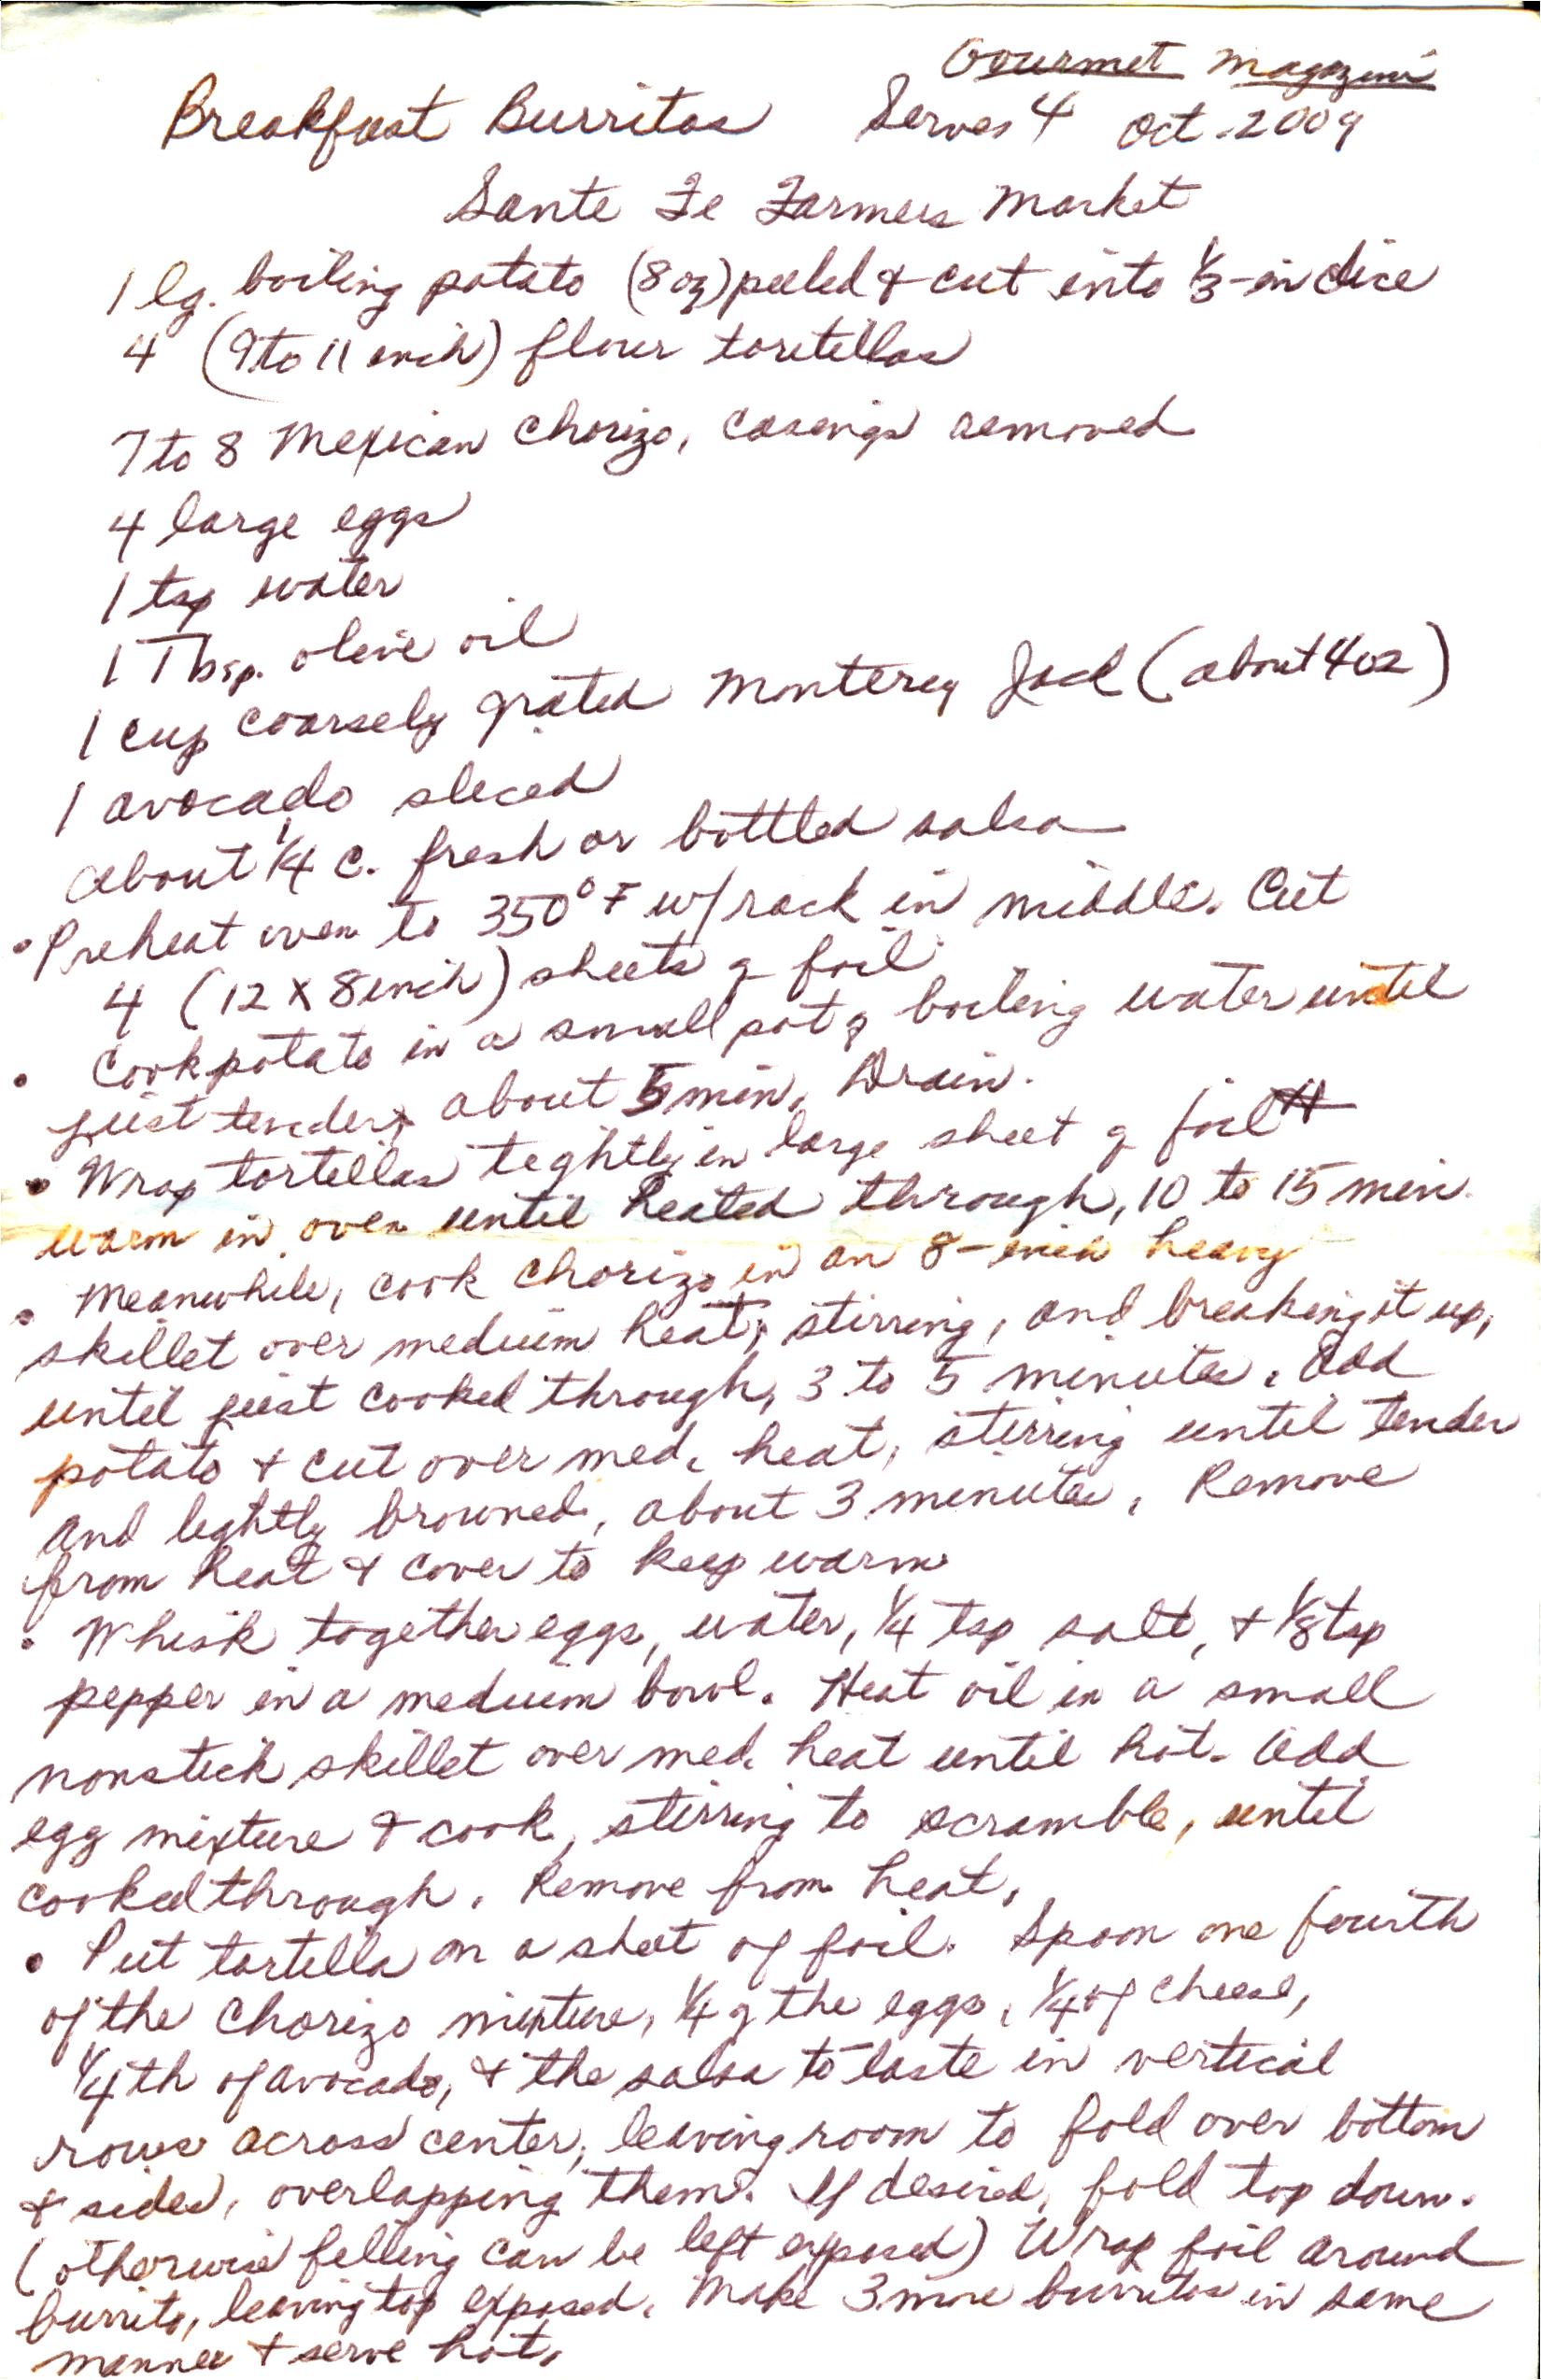 Gourmet Magazine
Breakfast Burritos Serves 4 Oct. 2009
Sante Fe Farmers Market
1 lg. boiling potato (8 oz) peeled & cut into 1/3-in dice
4 (9 to 11 inch) flour tortillas
7 to 8 Mexican Chorizo, casings removed
4 large eggs
1 tsp water
1 Tbsp. olive oil
1 cup coarsely grated Monterey Jack (about 4 oz)
1 avocado sliced
about 1/4 c. fresh or bottled salsa
• Preheat oven to 350° F w/rack in middle. Cut
4 (12 X 8 inch) sheets of foil.
• Cook potato in a small pot of boiling water until
just tender, about 5 min. Drain.
• Wrap tortillas tightly in large sheet of foil &
warm in oven until heated through, 10 to 15 min.
• Meanwhile, cook chorizo in an 8-inch heavy
skillet over medium heat, stirring, and breaking it up,
until just cooked through, 3 to 5 minutes. Add
potato & cut over med. heat, stirring until tender
and lightly browned, about 3 minutes. Remove
from heat & cover to keep warm
• Whisk together eggs, water, 1/4 tsp salt, & 1/8 tsp
pepper in a medium bowl. Heat oil in a small
nonstick skillet over med. heat until hot. Add
egg mixture & cook, stirring to scramble, until
cooked through. Remove from heat.
• Put tortilla on a sheet of foil. Spoon one fourth
of the chorizo mixture, 1/4 of the eggs, 1/4 of cheese,
1/4th of avocado, & the salsa to taste in vertical
rows across center, leaving room to fold over bottom
& sides, overlapping them. If desired, fold top down.
(otherwise filling can be left exposed) Wrap foil around
burrito, leaving top exposed. Make 3 more burritos in same
manner & serve hot.